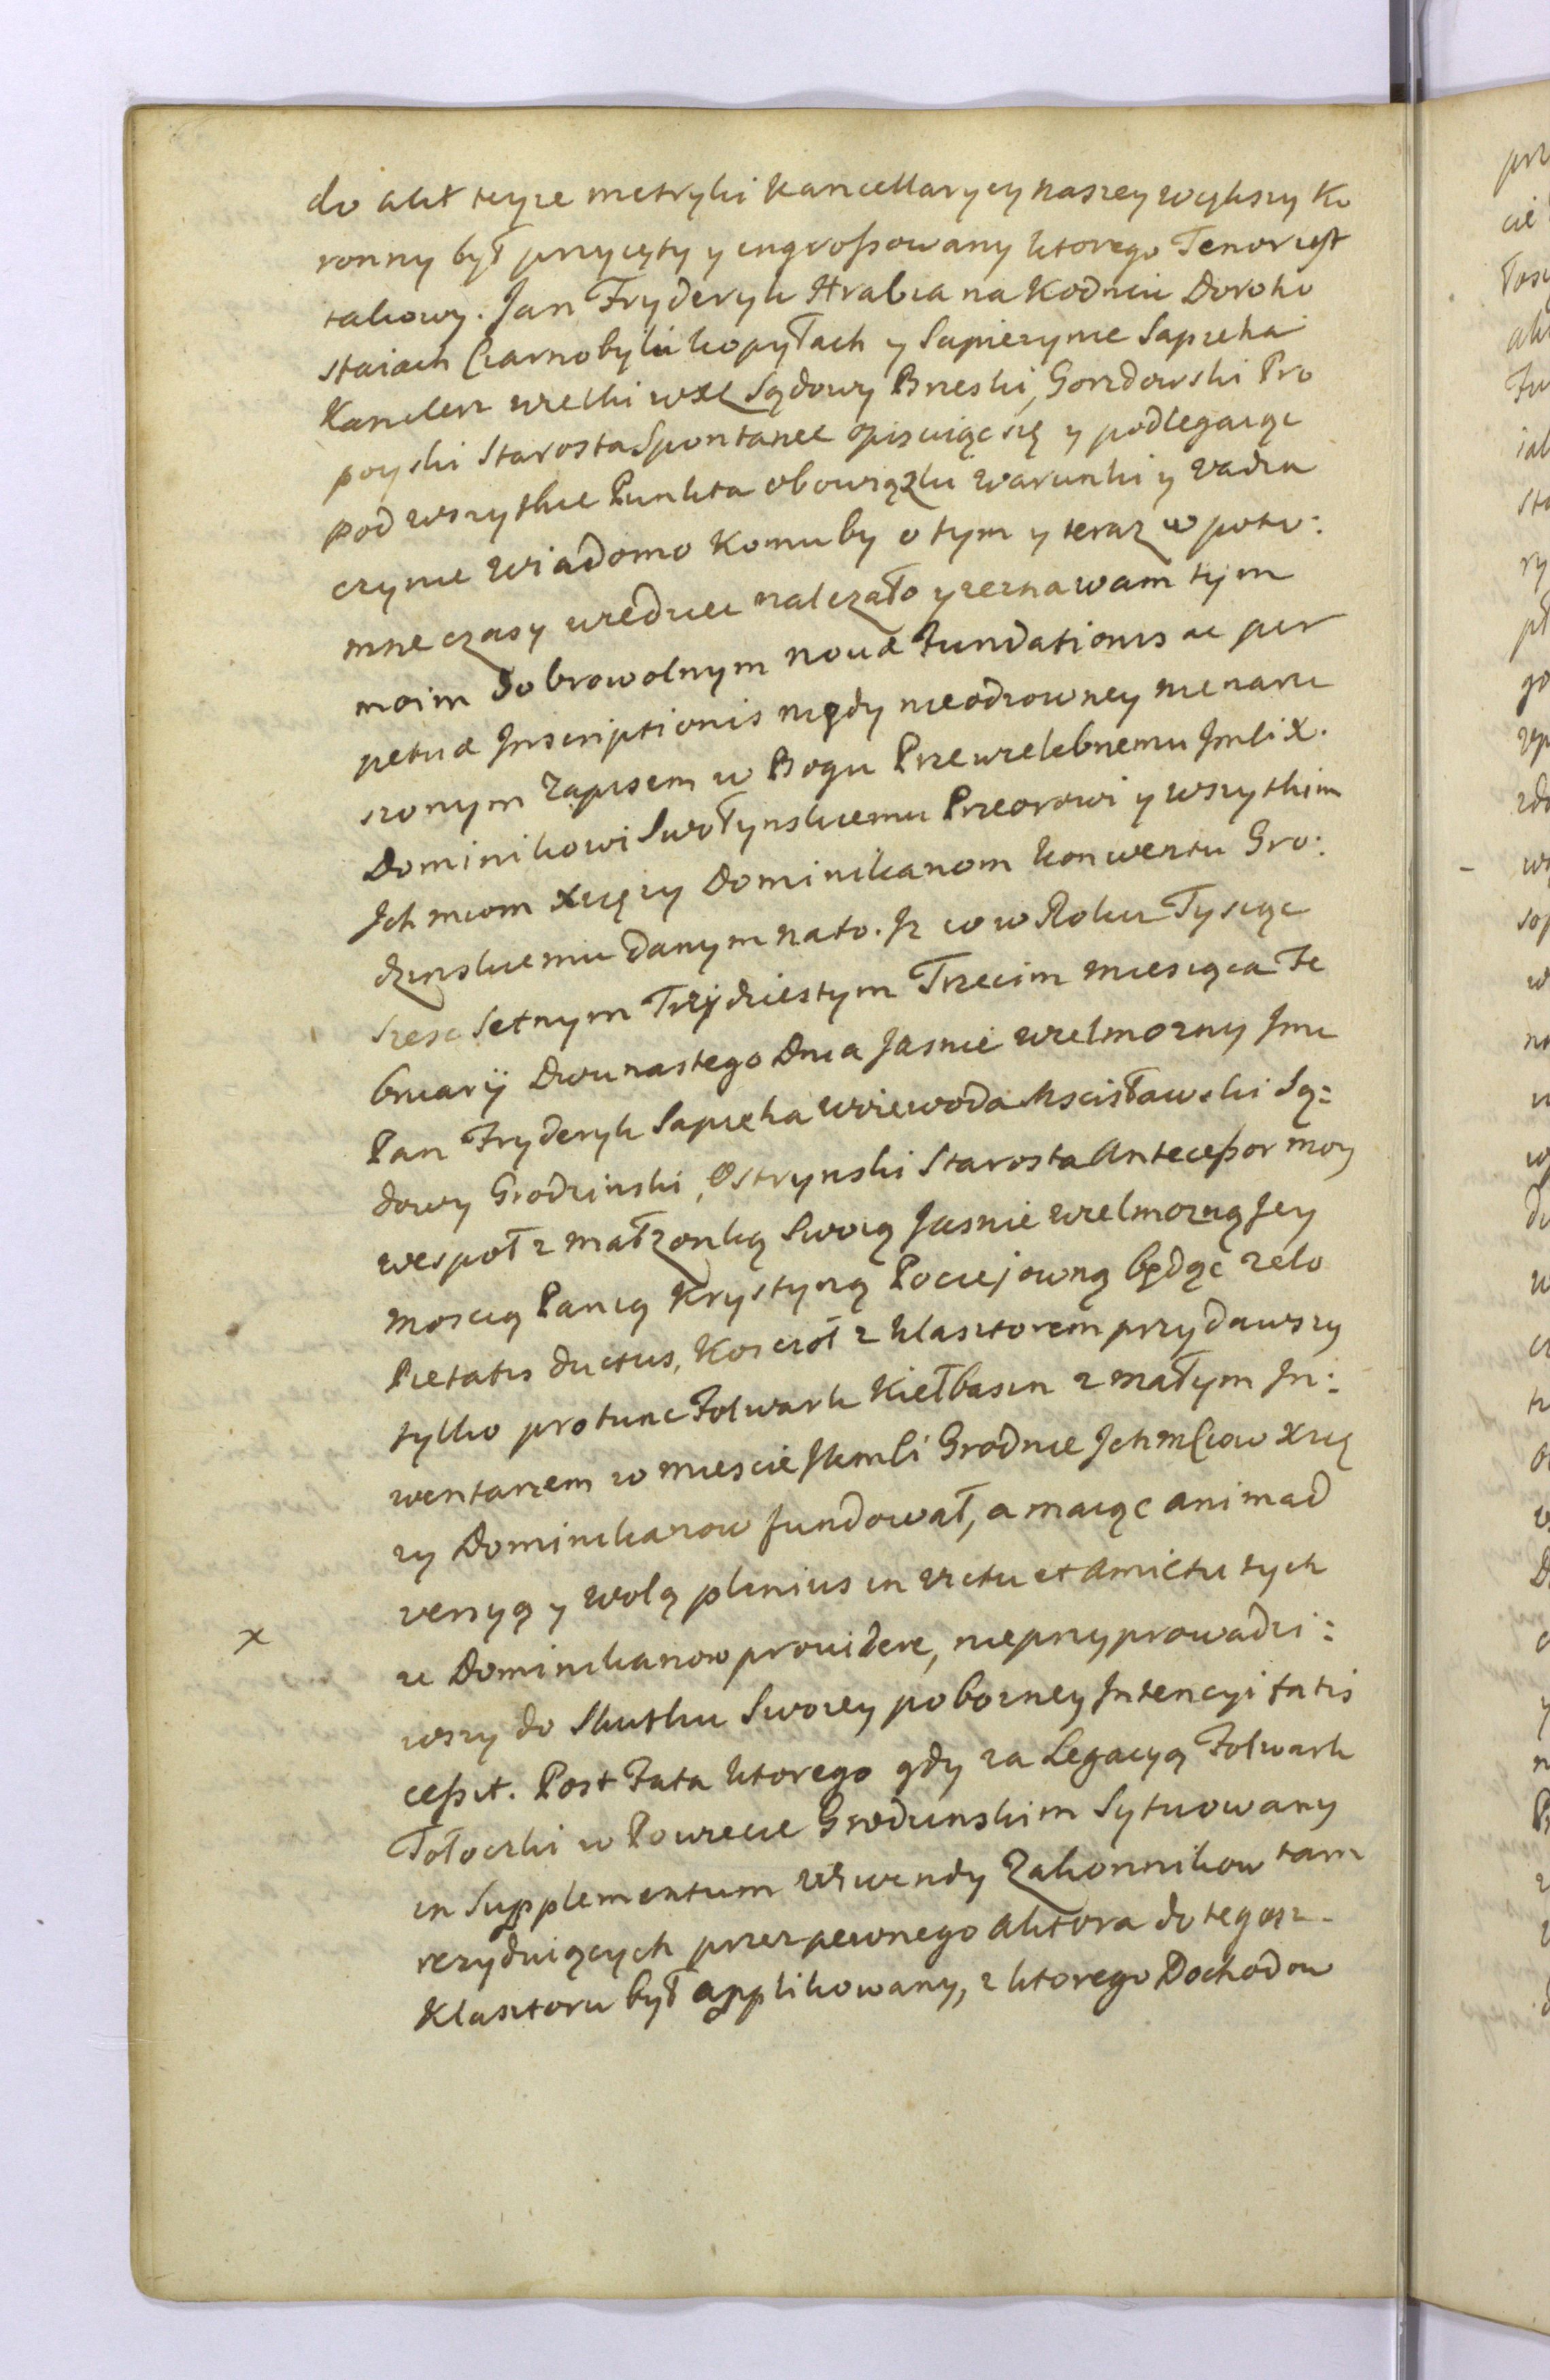 do akt teyze metryki kancellaryey naszey większy Ko
ronny był przyięty y ingrossowany ktorego Tenor iest
takowy. Jan Fryderyk Hrabia na Kodniu Doroho
staiach Czarnobylu kopyłach y Sapiezynie Sapieha
Kanclerz wielki wXL Sądowy Brzeski, Gorzdowski Pro
poyski Starosta Spontanee opisuiąc się y podlegaiąc
pod wszytkie Punkta obowiązku warunki y vadia
czynie wiadomo Komu by o tym y teraz w poto:
mne czasy wiedziec nalezało y zeznawam tym
moim dobrowolnym novæ Fundationis ac per
petuæ Inscriptionis nigdy nieodzowney nienaru
szonym Zapisem w Bogu Przewielebnemu Jmci X.
Dominikowi Swołynskiemu Przeorowi y wszytkim
Jch mciom Xięzy Dominikanom konwentu Gro:
dzinskiemu danym na to. Jz co w Roku Tysiąc
szesc Setnym Trzydziestym Trzecim miesiąca Fe
bruarij Dwunastego Dnia Jasnie wielmozny Jmc
Pan Fryderyk Sapieha Woiewoda Mscisławski Są:
dowy Grodzinski, Ostrynski Starosta Antecessor moy
wespoł z małzonką Swoią Jasnie wielmozną Jey
moscią Panią Krystyną Pociejowną będąc zelo
Pietatis ductus, Kosciół z klasztorem przydawszy
tylko pro tunc Folwark Kiełbasin z małym In:
wentarzem w miescie JKmci Grodnie Jchmściow Xię
zy Dominikanow fundował, a maiąc animad
versyą y wolą plenius in victu et Amictu tych
ze Dominikanow providere, nieprzyprowadzi:
wszy do Skutku Swoiey pobozney Intencyi fatis
cessit. Post Fata ktorego gdy za Legacyą Folwark
Tołoczki w Powiecie Grodzinskim Sytuowany
in Supplementum wiwendy Zakonnikow tam
rezyduiących przez pewnego Aktora do tegosz
Klasztoru był applikowany, z ktorego Dochodow
x